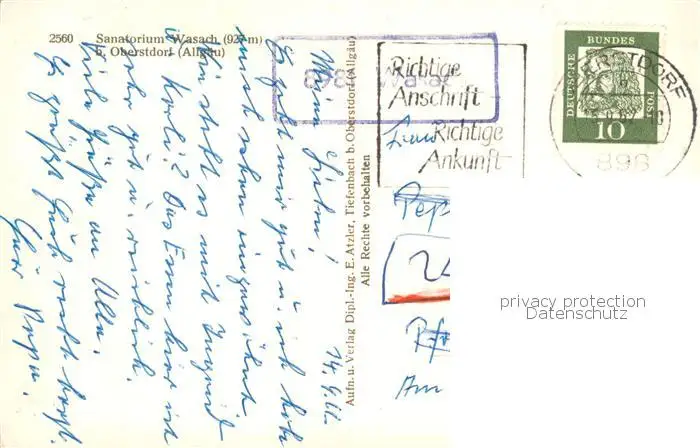 2560 Sanatorium Wasach (927 m)
b. Oberstdorf (Allgäu)
898 Wasach
(Allgäu)
Richtige
Anschrift
Richtige
Ankunft
DEUTSCHE
BUNDES
POST
10
OBERSTDORF
898
Aufn. u. Verlag Dipl.-Ing. E. Atzler, Tiefenbach b. Oberstdorf (Allgäu)
Alle Rechte vorbehalten
14.9.62.
Meine Lieben!
Es geht mir gut u. ich habe
mich schon eingewöhnt
Wie steht es mit Ingrid
Das Essen hier ist
sehr gut u. reichlich.
Viele Grüße an Alle.
Es grüßt Euch recht herzl.
Euer Papa.
Frau
Am
privacy protection
Datenschutz